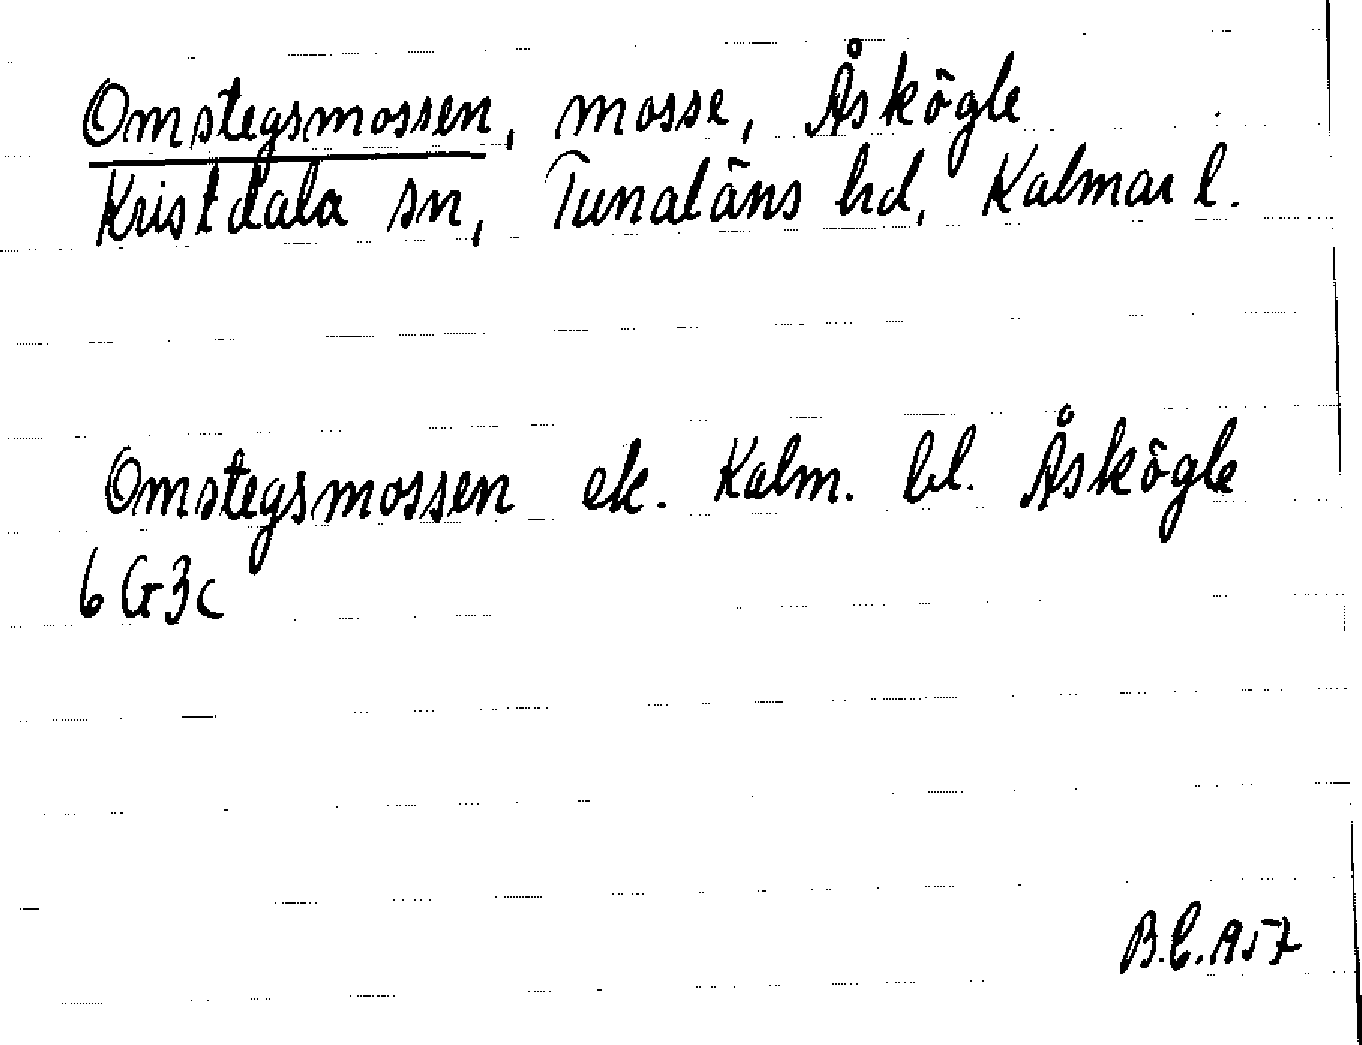 Omstegsmossen, mosse, Åskögle
Kristdala sn, Tunaläns hd, Kalmar l.
Omstegsmossen ek. Kalm. bl. Åskögle
6G3c